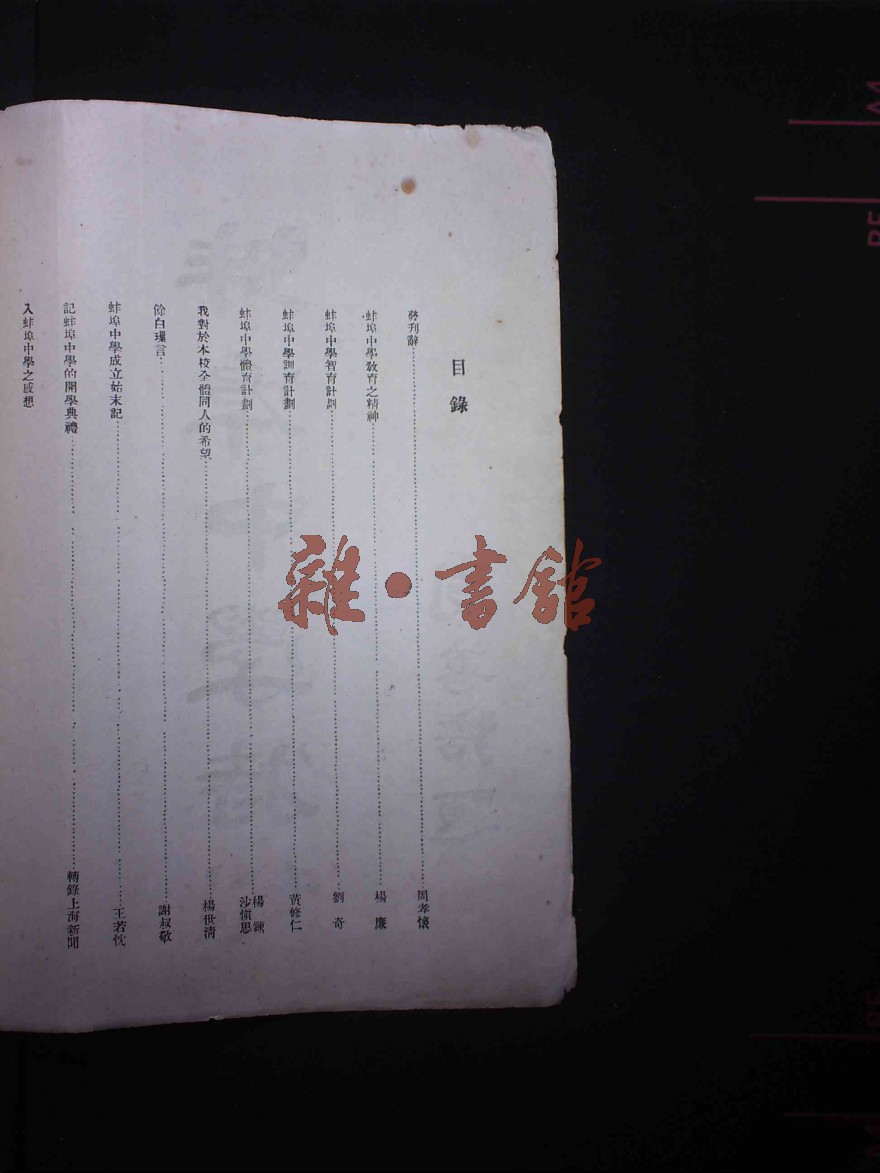 目錄
發刊辭……周孝懷
蚌埠中學教育之精神……楊廉
蚌埠中學智育計劃……劉奇
蚌埠中學訓育計劃……黃修仁
蚌埠中學體育計劃……楊 沙愼思
我對於本校全體同人的希望……楊世淸
餘白瑾言……謝叔敬
蚌埠中學成立始末記……王若忱
記蚌埠中學的開學典禮……轉錄上海新聞
入蚌埠中學之感想
雜·書館